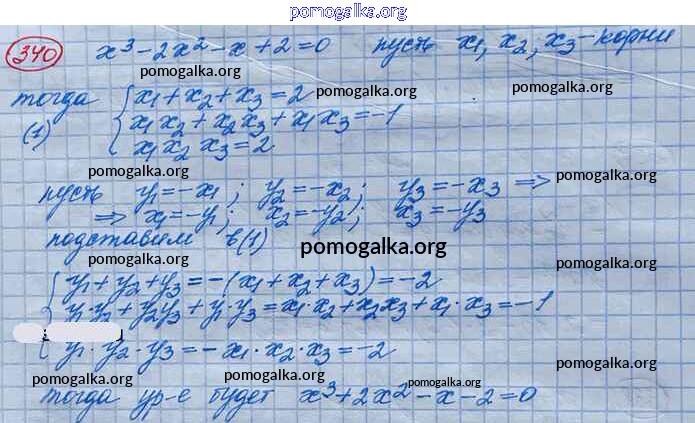 pomogalka.org
340 x³ - 2x² - x + 2 = 0 пусть x₁, x₂, x₃ - корни
pomogalka.org
тогда x₁ + x₂ + x₃ = 2 pomogalka.org
(1) x₁x₂ + x₂x₃ + x₁x₃ = -1
pomogalka.org
x₁x₂x₃ = 2
pomogalka.org
пусть y₁ = -x₁; y₂ = -x₂; y₃ = -x₃ ⇒ pomogalka.org
⇒ x₁ = -y₁; x₂ = -y₂; x₃ = -y₃
подставим в (1) pomogalka.org
pomogalka.org
y₁ + y₂ + y₃ = -(x₁ + x₂ + x₃) = -2
y₁·y₂ + y₂y₃ + y₁·y₃ = x₁·x₂ + x₂x₃ + x₁·x₃ = -1
y₁·y₂·y₃ = -x₁·x₂·x₃ = -2
pomogalka.org
pomogalka.org pomogalka.org pomogalka.org
тогда ур-е будет x³ + 2x² - x - 2 = 0